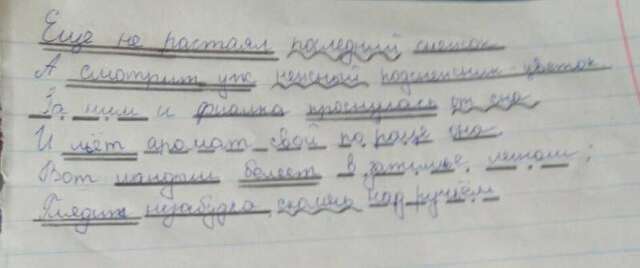 Еще не растаял последний снежок
А смотрит уж нежный подснежник цветок
За ним и фиалка проснулась от сна
И льёт аромат свой по роще она
Вот ландыш белеет в затишье лесном;
Глядит незабудка склонясь над ручьём